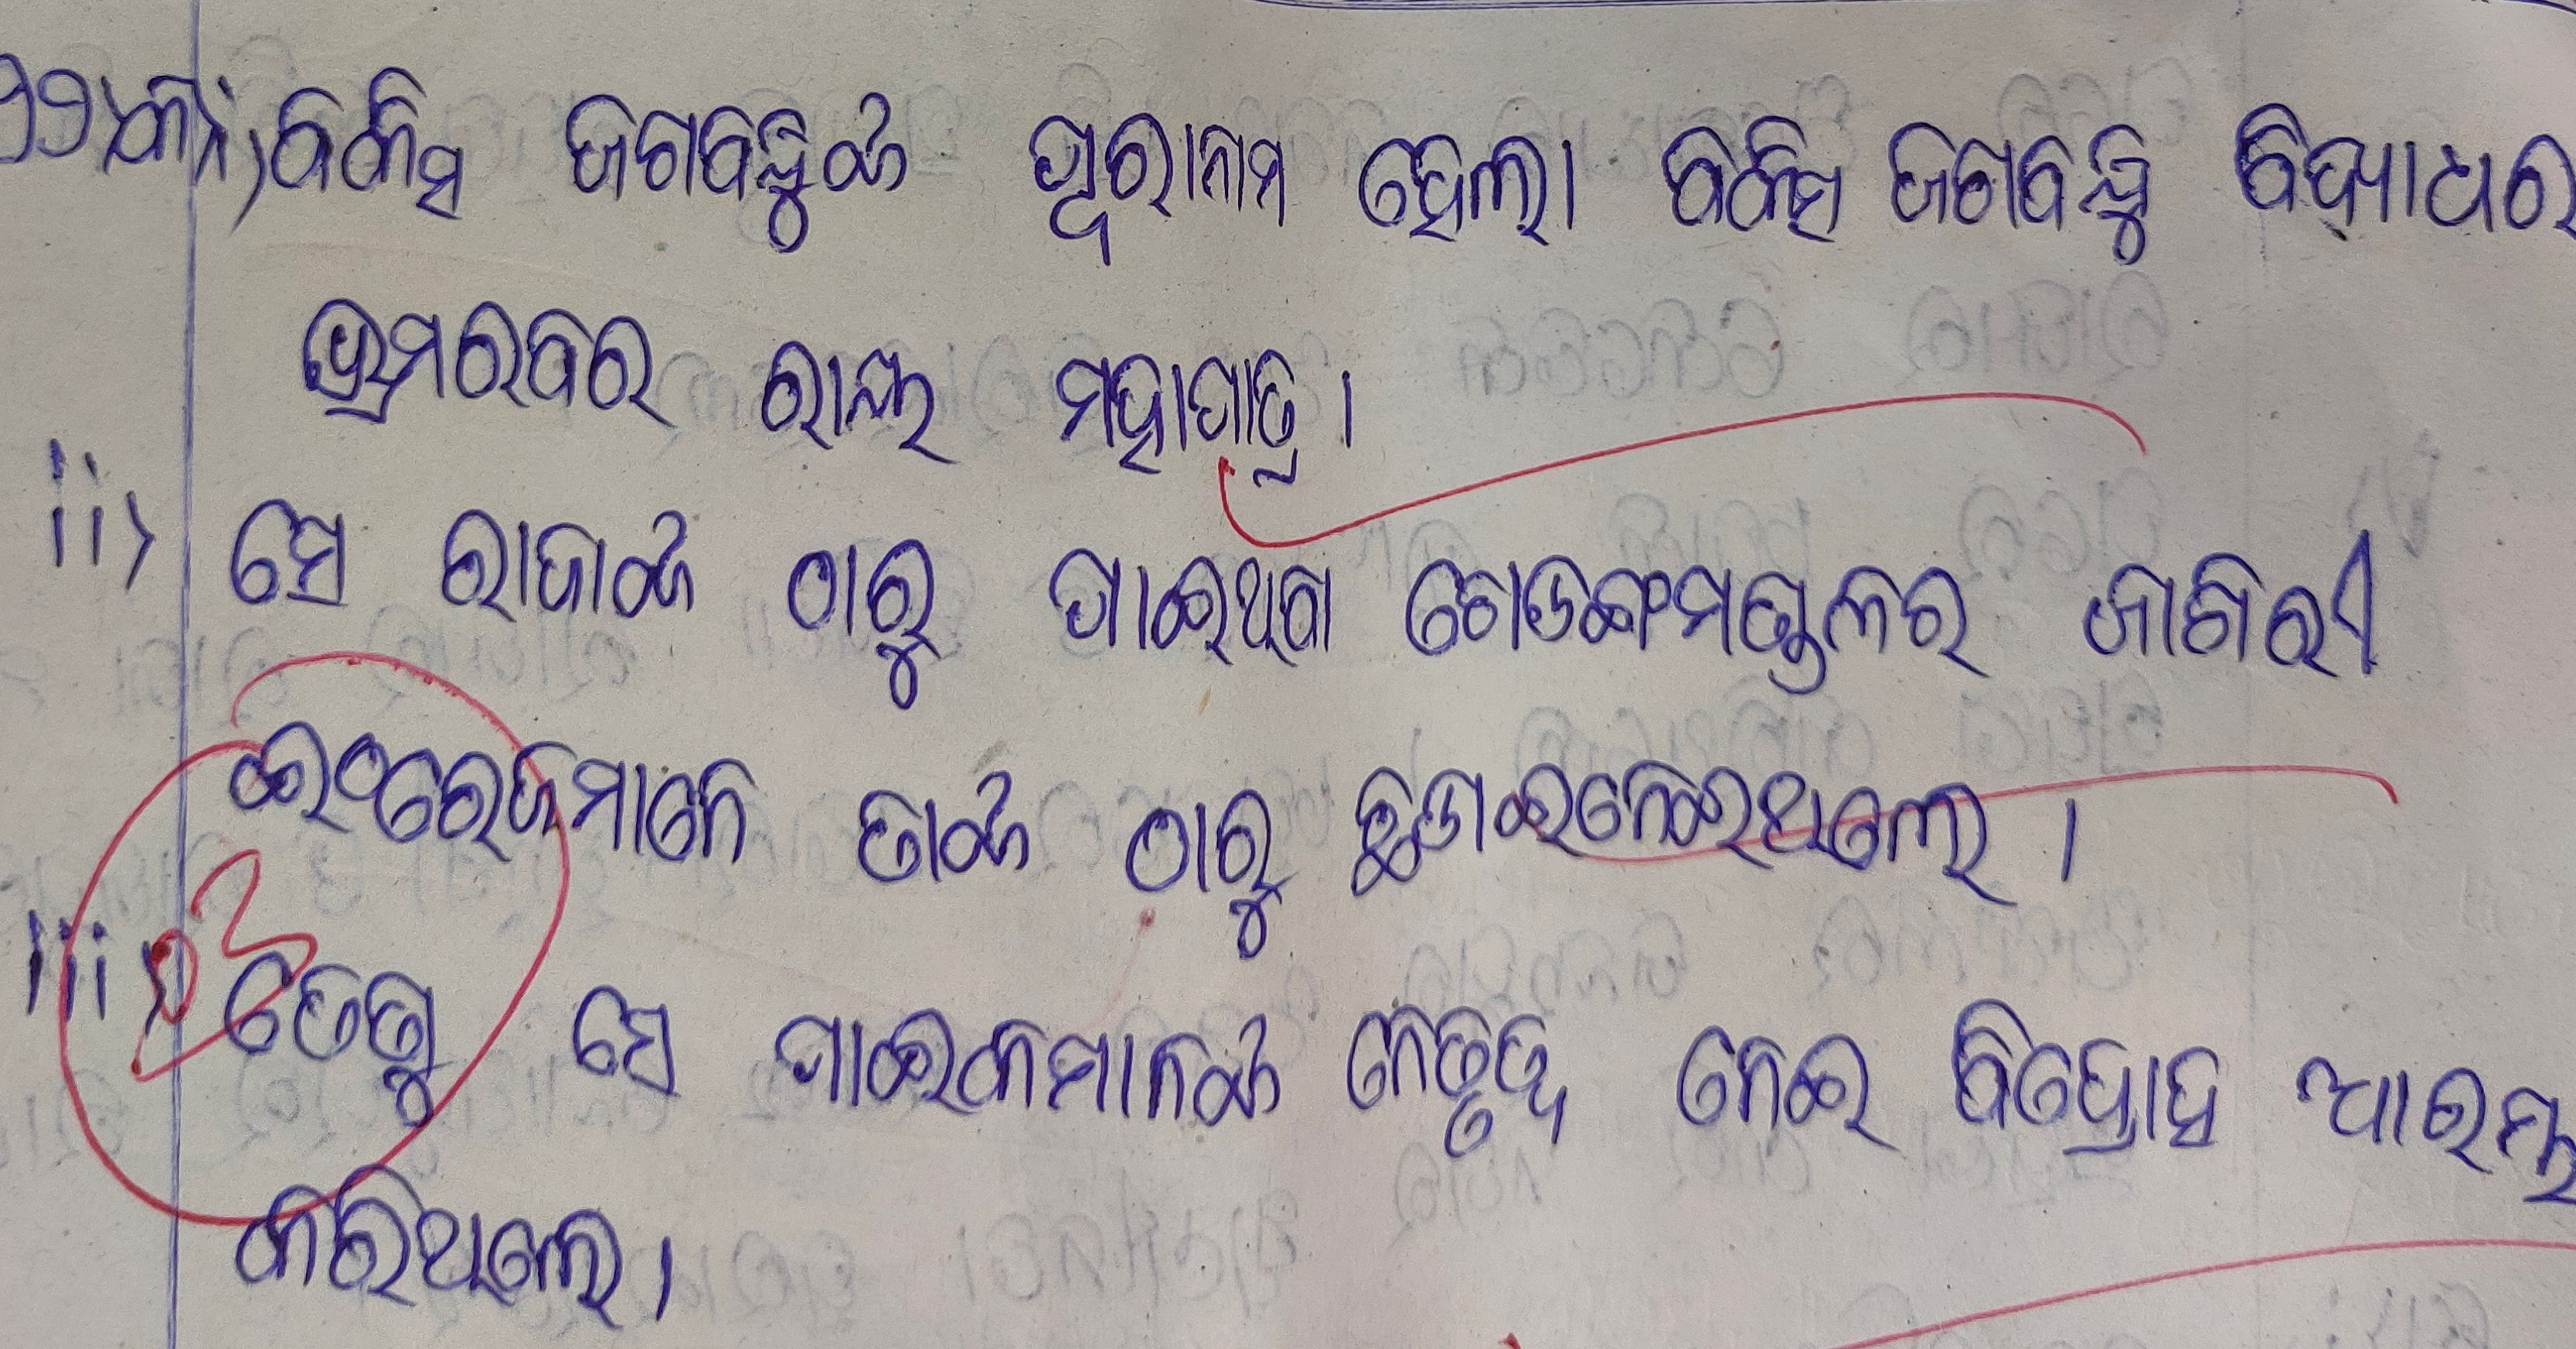 ୨୨)କ)i) ବକ୍ସି ଜଗବନ୍ଧୁଙ୍କ ପୁରାନାମ ହେଲା ବକ୍ସି ଜଗବନ୍ଧୁ ବିଦ୍ୟାଧର
ଭ୍ରମରବର ରାୟ ମହାପାତ୍ର।
ii) ସେ ରାଜାଙ୍କ ଠାରୁ ପାଇଥିବା ରୋଡଙ୍ଗମଣ୍ଡଳର ଜାଗିରୀ
ଇଂରେଜମାନେ ତାଙ୍କ ଠାରୁ ଛଡାଇନେଇଥିଲେ ।
iii) ତେଣୁ ସେ ପାଇକମାନଙ୍କ ନେତୃତ୍ୱ ନେଇ ବିଦ୍ରୋହ ଆରମ୍ଭ
କରିଥିଲେ।